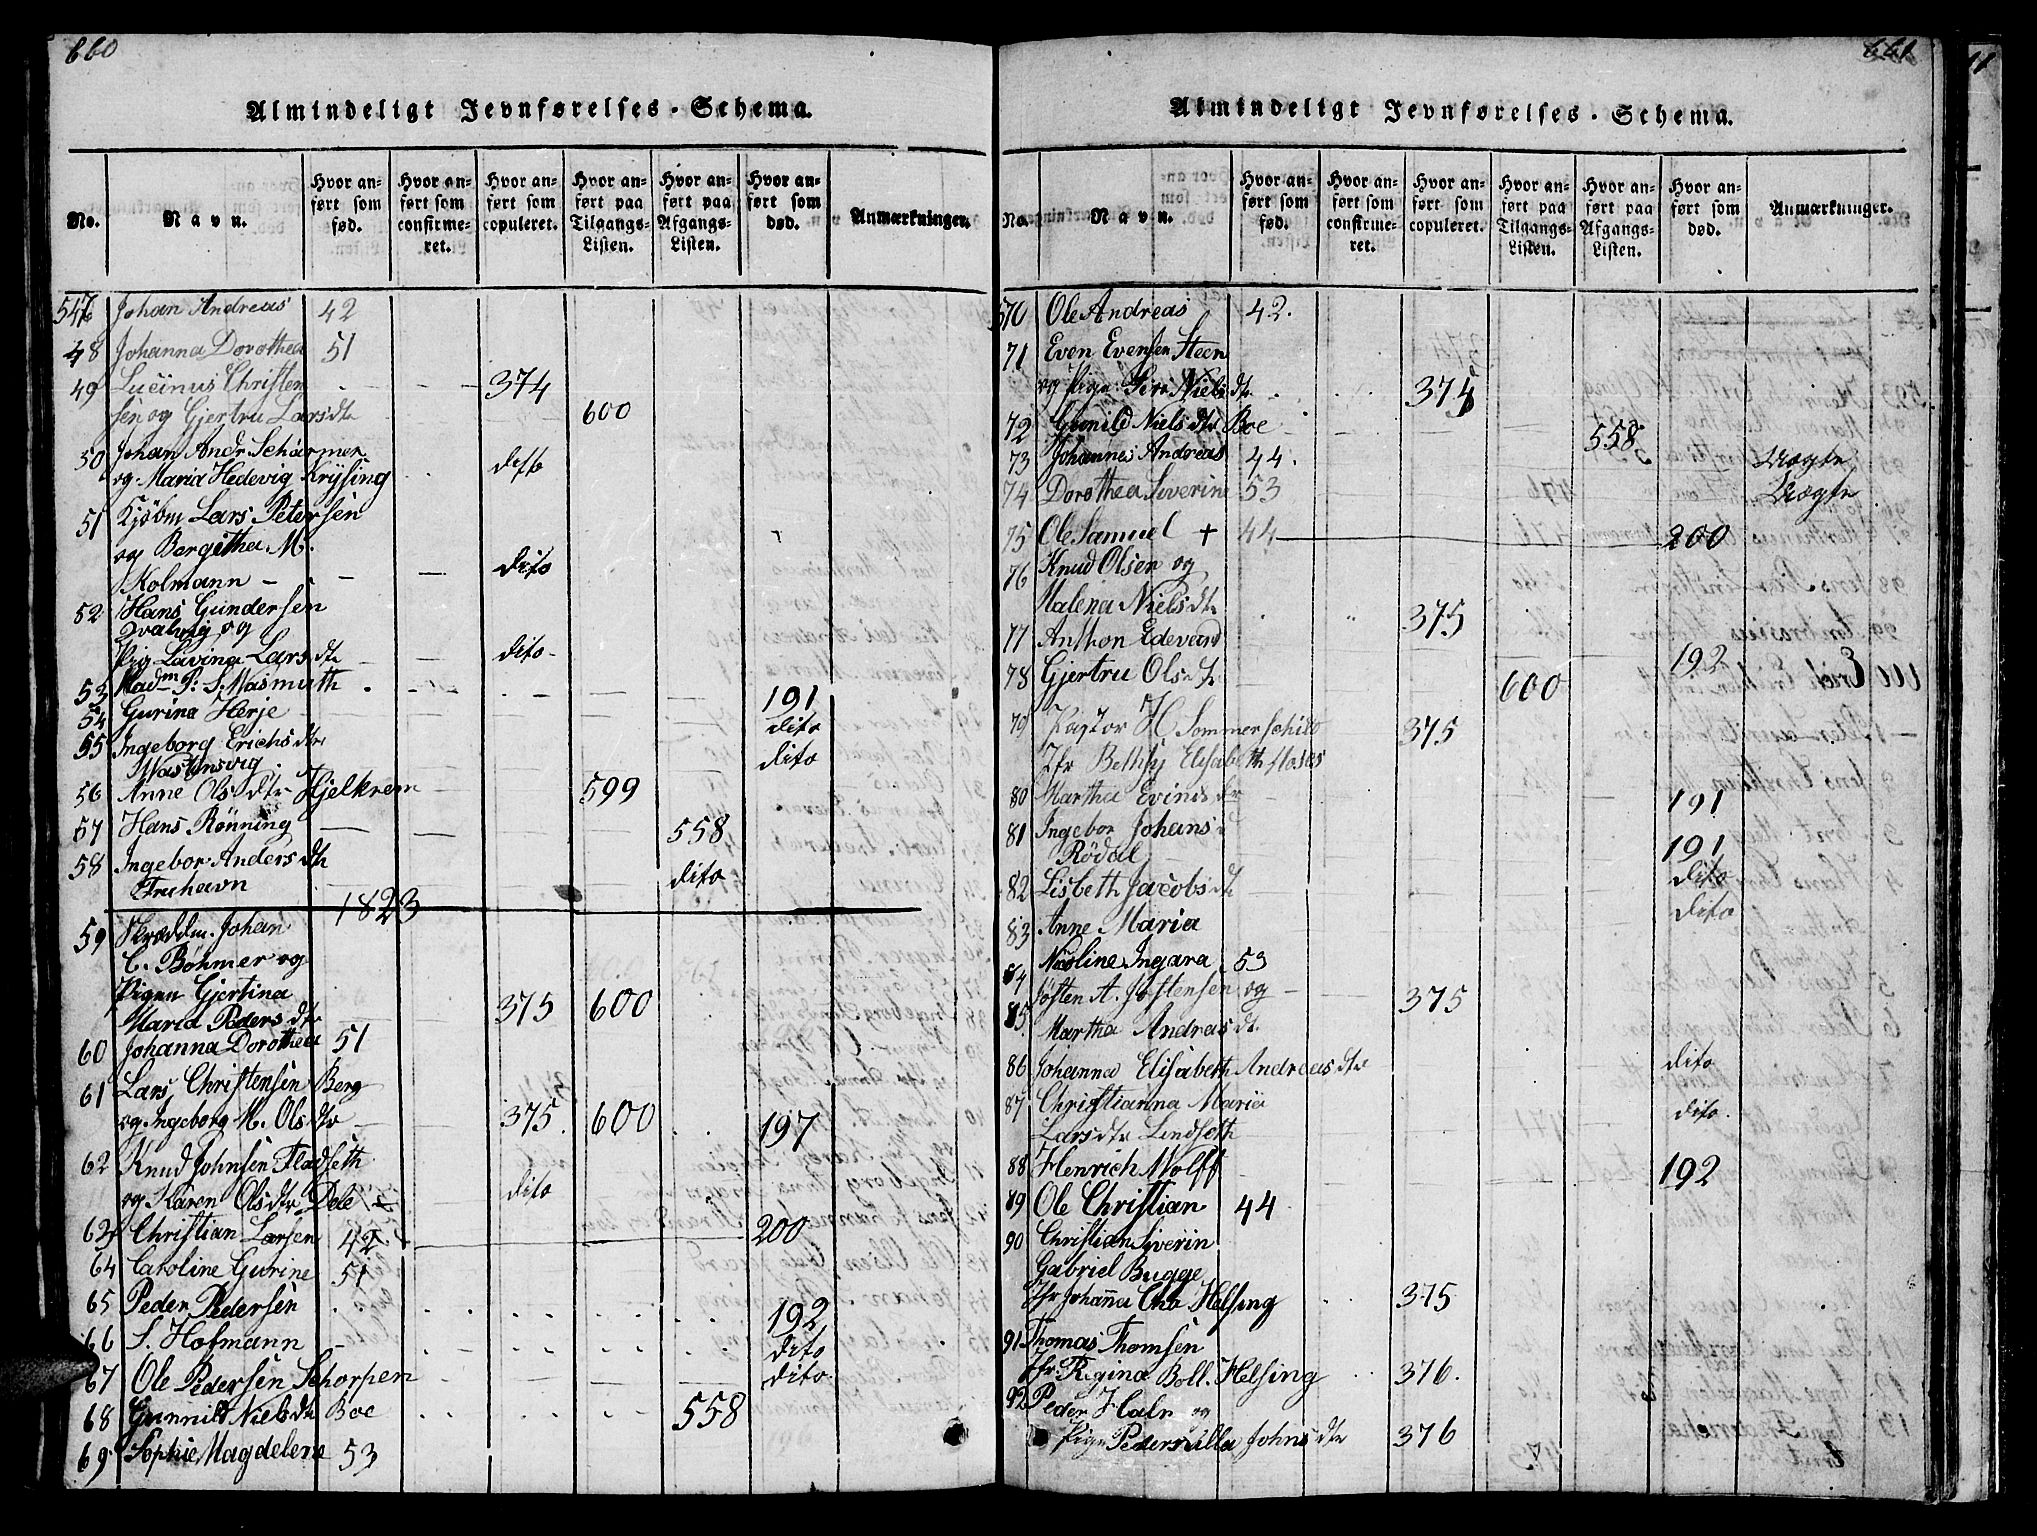 660
Almindeligt Jevnførelses-Schema.
No.
Navn.
Hvor anført som fød.
Hvor anført som confirmeret.
Hvor anført som copuleret.
Hvor anført paa Tilgangs-Listen.
Hvor anført paa Afgangs-Listen.
Hvor anført som død.
Anmærkninger.
547 Johan Andreas 42
48 Johanna Dorothea 51
49 Lucinus Christen 374
sen og Gjertru Larsdtr 600
50 Johan Andr Schärmer dito
og Maria Hedevig Krysing
51 Kjöbm Lars Petersen
og Bergitha M.
Kolmann - dito
52 Hans Gundersen
Qvalvig og
Pig Lavina Larsdtr dito
53 Madm P: S. Wasmuth 191
54 Gurina Herje dito
55 Ingeborg Erichsdtr
Wastensvig. dito
56 Anne Olsdtr Hjelkrem 599
57 Hans Rønning 558
58 Ingebor Andersdtr
Fruhavn dito
1823
59 Skreddm. Johan
C. Böhmer og
Pigen Gjertina
Maria Pedersdtr 375 600
60 Johanna Dorothea 51
61 Lars Christensen Berg
og Ingeborg M. Olsdtr 375. 600 197
62 Knud Johnsen Fladseth
og Karen Olsdtr Dele dito
63 Christian Larsen 42 200
64 Caroline Gurine 51
65 Peder Pedersen 192
66 S. Hofmann dito
67 Ole Pedersen Schorpen dito
68 Gunnild Nielsdtr Boe 558
69 Sophie Magdelene 53
661
Almindeligt Jevnførelses-Schema.
No.
Navn.
Hvor anført som fød.
Hvor anført som confirmeret.
Hvor anført som copuleret.
Hvor anført paa Tilgangs-Listen.
Hvor anført paa Afgangs-Listen.
Hvor anført som død.
Anmærkninger.
570 Ole Andreas 42.
71 Even Evensen Steen
og Pige Siri Nielsdtr 374
72 Gunild Nielsdtr Boe 558
73 Johannes Andreas 44. Uægte
74 Dorothea Siverine 53 Uægte
75 Ole Samuel + 44 200
76 Knud Olsen og
Malena Nielsdtr 375
77 Anthon Edevard
78 Gjertru Olsdtr 600 192
79 Pastor H Sommerschild 375
Jfr Bethsy Elisabeth Moses
80 Martha Evinsdtr 191
81 Ingebor Johansd
Rödal 191
82 Lisbeth Jacobsdtr dito
83 Anne Maria dito
84 Nicoline Ingara 53
85. Jøsten A. Jostensen og 375
Martha Andreasdt.
86 Johanna Elisabeth Andreasdtr dito
87 Christianna Maria
Larsdtr Lindseth dito.
88 Henrich Wolff 192
89 Ole Christian 44
90 Christian Siverin
Gabriel Bugge
Jfr Johanna Cha Helsing 375
91 Thomas Thomsen
Jfr Regina Boll. Helsing 376.
92 Peder Halr og
Pige Pedersilla Johnsdtr 376